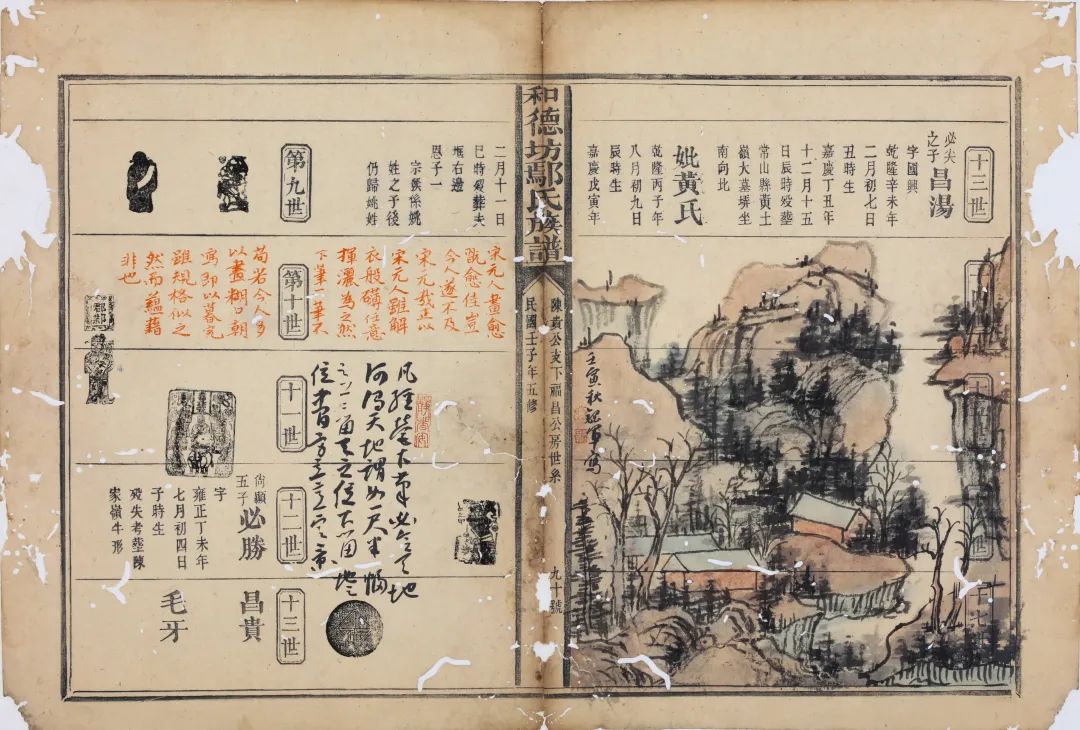 十三世
必夫
之子
昌湯
字國興
乾隆辛未年
二月初七日
丑時生
嘉慶丁丑年
十二月十五
日辰時歿葬
常山縣黄土
嶺大墓塝坐
南向北
妣黃氏
乾隆丙子年
八月初九日
辰時生
嘉慶戊寅年
壬寅秋
和德坊鄢氏族譜
陳貴公支下福昌公房世系
民國壬子年五修
九十號
二月十一日
巳時歿葬夫
塚右邊
恩子一
宗族係姚
姓之子後
仍歸姚姓
第九世
第十世
宋元人畫愈
翫愈佳豈一
今人遂不及
宋元哉正以
宋元人雖解
衣般礴任意
揮灑為之然
下筆一筆不
苟若今人多
以畫糊口朝
寫即以暮完
雖規格似之
然而蘊藉
非也
十一世
凡經營下筆必合天地
何謂天地謂如一尺半幅
之上上留天之位下留地之
位中間方立意定景
十二世
尚顯
五子
必勝
字
雍正丁未年
七月初四日
子時生
歿失考葬陳
家嶺牛形
十三世
昌貴
毛牙